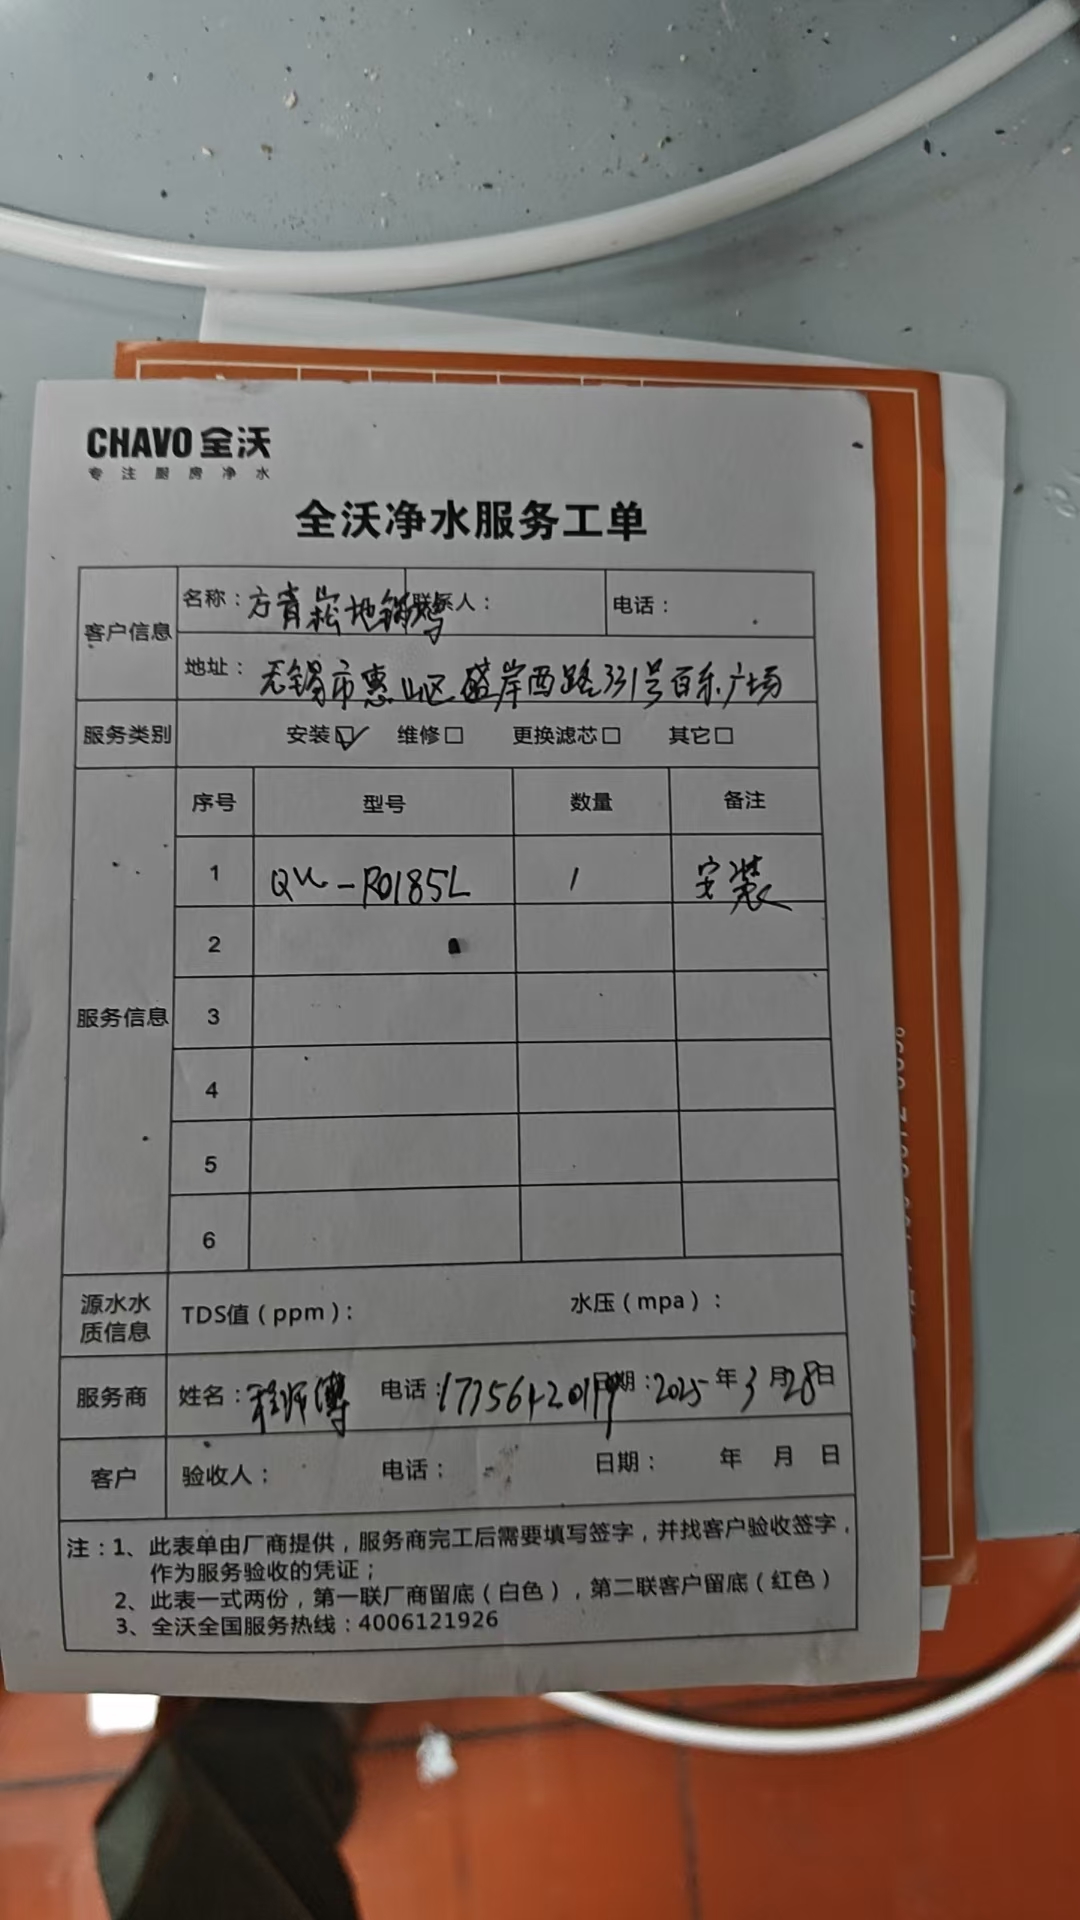 CHAVO 全沃
专注厨房净水
全沃净水服务工单
客户信息 名称：方青崧地锅鸡 联系人： 电话：
地址：无锡市惠山区盛岸西路331号百乐广场
服务类别 安装☑ 维修☐ 更换滤芯☐ 其它☐
服务信息 序号 型号 数量 备注
1 QW-RO185L 1 安装
2
3
4
5
6
源水水质信息 TDS值（ppm）： 水压（mpa）：
服务商 姓名：程师傅 电话： 日期：2025年3月28日
客户 验收人： 电话： 日期： 年 月 日
注：1、此表单由厂商提供，服务商完工后需要填写签字，并找客户验收签字，
作为服务验收的凭证；
2、此表一式两份，第一联厂商留底（白色），第二联客户留底（红色）
3、全沃全国服务热线：4006121926